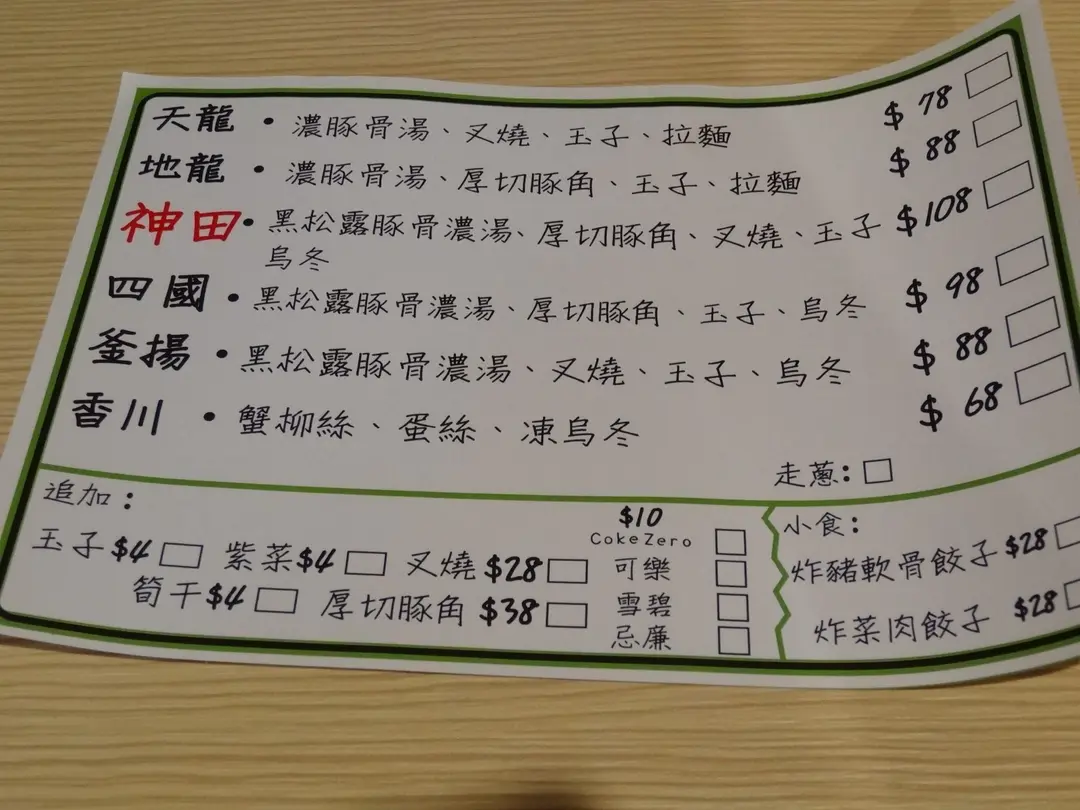 天龍 • 濃豚骨湯、叉燒、玉子、拉麵 $ 78
地龍 • 濃豚骨湯、厚切豚角、玉子、拉麵 $ 88
神田 • 黑松露豚骨濃湯、厚切豚角、叉燒、玉子 $108
烏冬
四國 • 黑松露豚骨濃湯、厚切豚角、玉子、烏冬 $ 98
釜揚 • 黑松露豚骨濃湯、叉燒、玉子、烏冬 $ 88
香川 • 蟹柳絲、蛋絲、凍烏冬 $ 68
走蔥:
追加:
玉子$4 紫菜$4 叉燒$28
筍干$4 厚切豚角 $38
$10
CokeZero
可樂
雪碧
忌廉
小食:
炸豬軟骨餃子 $28
炸菜肉餃子 $28